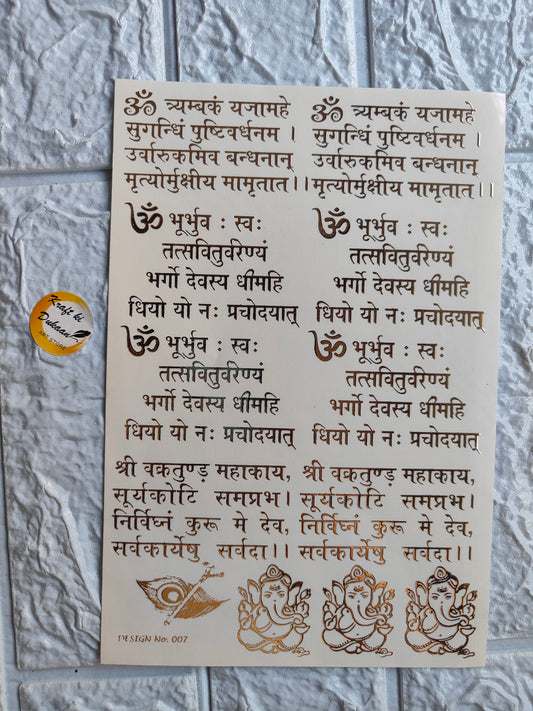 ॐ त्र्यम्बकं यजामहे
सुगन्धिं पुष्टिवर्धनम ।
उर्वारुकमिव बन्धनान्
मृत्योर्मुक्षीय मामृतात ।।
ॐ त्र्यम्बकं यजामहे
सुगन्धिं पुष्टिवर्धनम ।
उर्वारुकमिव बन्धनान्
मृत्योर्मुक्षीय मामृतात ।।
ॐ भूर्भुव : स्वः
तत्सवितुर्वरेण्यं
भर्गो देवस्य धीमहि
धियो यो नः प्रचोदयात्
ॐ भूर्भुव : स्वः
तत्सवितुर्वरेण्यं
भर्गो देवस्य धीमहि
धियो यो नः प्रचोदयात्
ॐ भूर्भुव : स्वः
तत्सवितुर्वरेण्यं
भर्गो देवस्य धीमहि
धियो यो नः प्रचोदयात्
ॐ भूर्भुव : स्वः
तत्सवितुर्वरेण्यं
भर्गो देवस्य धीमहि
धियो यो नः प्रचोदयात्
श्री वक्रतुण्ड महाकाय,
सूर्यकोटि समप्रभ।
निर्विघ्नं कुरू मे देव,
सर्वकार्येषु सर्वदा।।
श्री वक्रतुण्ड महाकाय,
सूर्यकोटि समप्रभ।
निर्विघ्नं कुरू मे देव,
सर्वकार्येषु सर्वदा।।
DESIGN No. 007
Kraft ki
Dukaan